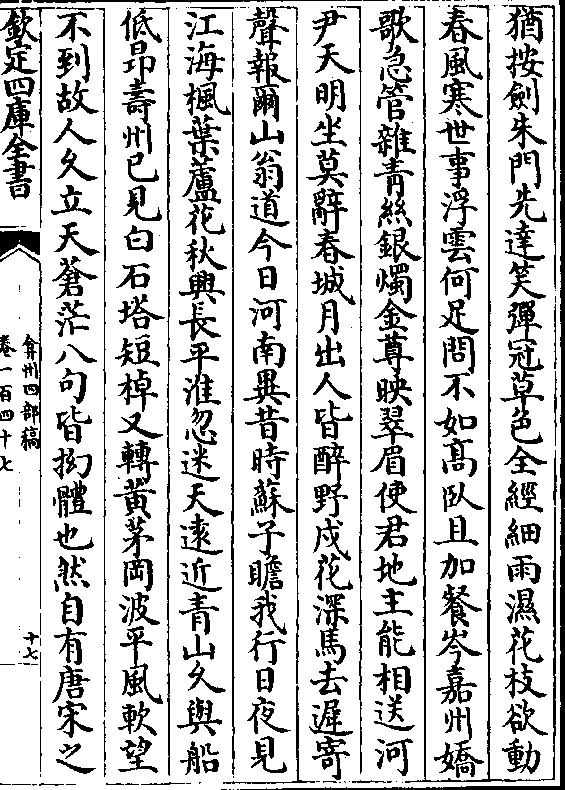 猶按劍朱門先達笑彈冠草色全經細雨濕花枝欲動
春風寒世事浮雲何足問不如髙臥且加餐岑嘉州嬌
歌急管雜青絲銀燭金尊映翠眉使君地主能相送河
尹天明坐莫辭春城月出人皆醉野戍花深馬去遲寄
聲報爾山翁道今日河南異昔時蘇子瞻我行日夜見
江海楓葉蘆花秋興長平淮忽迷天逺近青山久與船
低昂壽州已見白石塔短棹又轉黃茅岡波平風軟望
不到故人久立天蒼茫八句皆拗體也然自有唐宋之
欽定四庫全書
弇州四部稿
卷一百四十七
十七